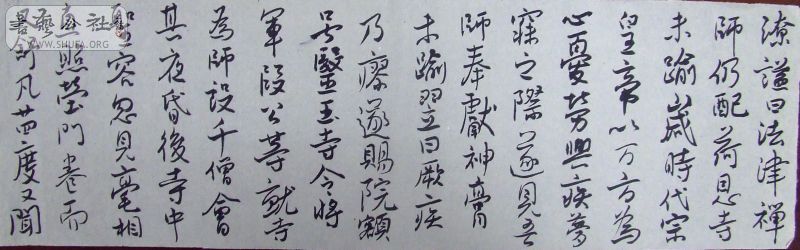 谥曰法津禅
師仍配荷恩寺
未踰歲時代宗
皇帝以万方為
心憂勞興疾夢
寐之際遂見吾
師奉獻神膏
未踰翌日厥疾
乃瘳遂賜院額
号醫王寺令將
軍段公等就寺
為師設千僧會
其夜昏後寺中
聖容忽見毫相
直照營門卷而
舒凡廿四度又聞
WWW.SHUFA.ORG